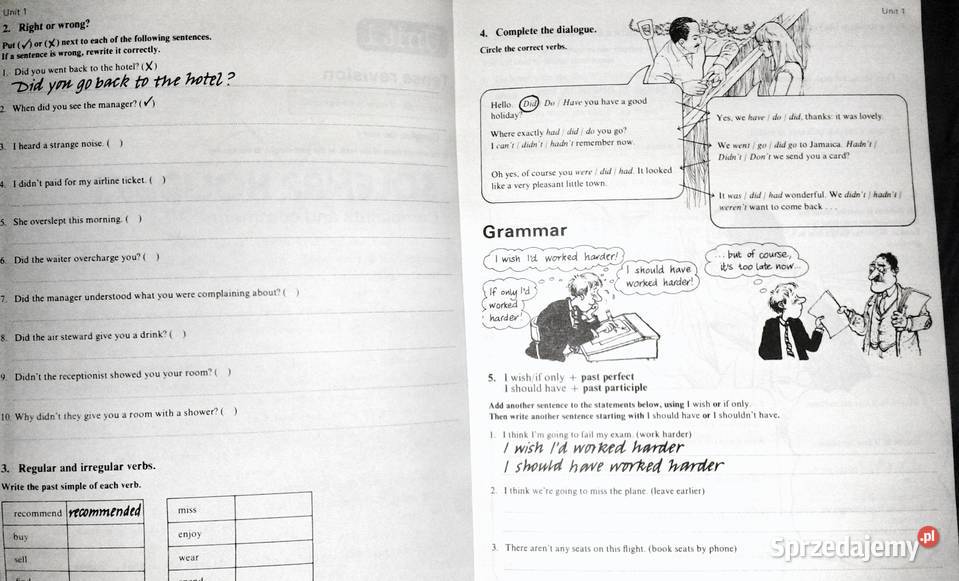 Unit 1
2. Right or wrong?
Put (✓) or (X) next to each of the following sentences.
If a sentence is wrong, rewrite it correctly.
1. Did you went back to the hotel? (X)
Did you go back to the hotel?
2. When did you see the manager? (✓)
3. I heard a strange noise. ( )
4. I didn't paid for my airline ticket. ( )
5. She overslept this morning. ( )
6. Did the waiter overcharge you? ( )
7. Did the manager understood what you were complaining about? ( )
8. Did the air steward give you a drink? ( )
9. Didn't the receptionist showed you your room? ( )
10. Why didn't they give you a room with a shower? ( )
3. Regular and irregular verbs.
Write the past simple of each verb.
recommend recommended
buy
sell
miss
enjoy
wear
Unit 1
4. Complete the dialogue.
Circle the correct verbs.
Hello. Did / Do / Have you have a good
holiday?
Yes, we have / do / did, thanks: it was lovely.
Where exactly had / did / do you go?
I can't / didn't / hadn't remember now.
We went / go / did go to Jamaica. Hadn't /
Didn't / Don't we send you a card?
Oh yes, of course you were / did / had. It looked
like a very pleasant little town.
It was / did / had wonderful. We didn't / hadn't /
weren't want to come back . . .
Grammar
I wish I'd worked harder!
If only I'd
worked
harder!
I should have
worked harder!
... but of course,
it's too late now...
5. I wish/if only + past perfect
I should have + past participle
Add another sentence to the statements below, using I wish or if only.
Then write another sentence starting with I should have or I shouldn't have.
1. I think I'm going to fail my exam. (work harder)
I wish I'd worked harder
I should have worked harder
2. I think we're going to miss the plane. (leave earlier)
3. There aren't any seats on this flight. (book seats by phone)
Sprzedajemy.pl